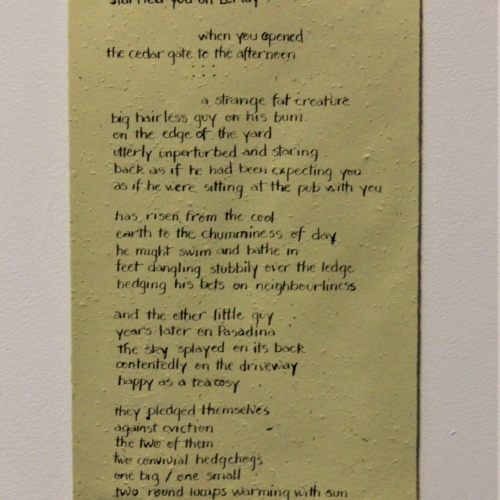 you on
when you opened
the cedar gate to the afternoon
. . .
a strange fat creature
big hairless guy on his bum
on the edge of the yard
utterly unperturbed and staring
back as if he had been expecting you
as if he were sitting at the pub with you
has risen from the cool
earth to the chumminess of day
he might swim and bathe in
feet dangling stubbily over the ledge
hedging his bets on neighbourliness
and the other little guy
years later on Pasadina
the sky splayed on its back
contentedly on the driveway
happy as a teacosy
they pledged themselves
against eviction
the two of them
two convivial hedgehogs
one big / one small
two round lumps warming with sun